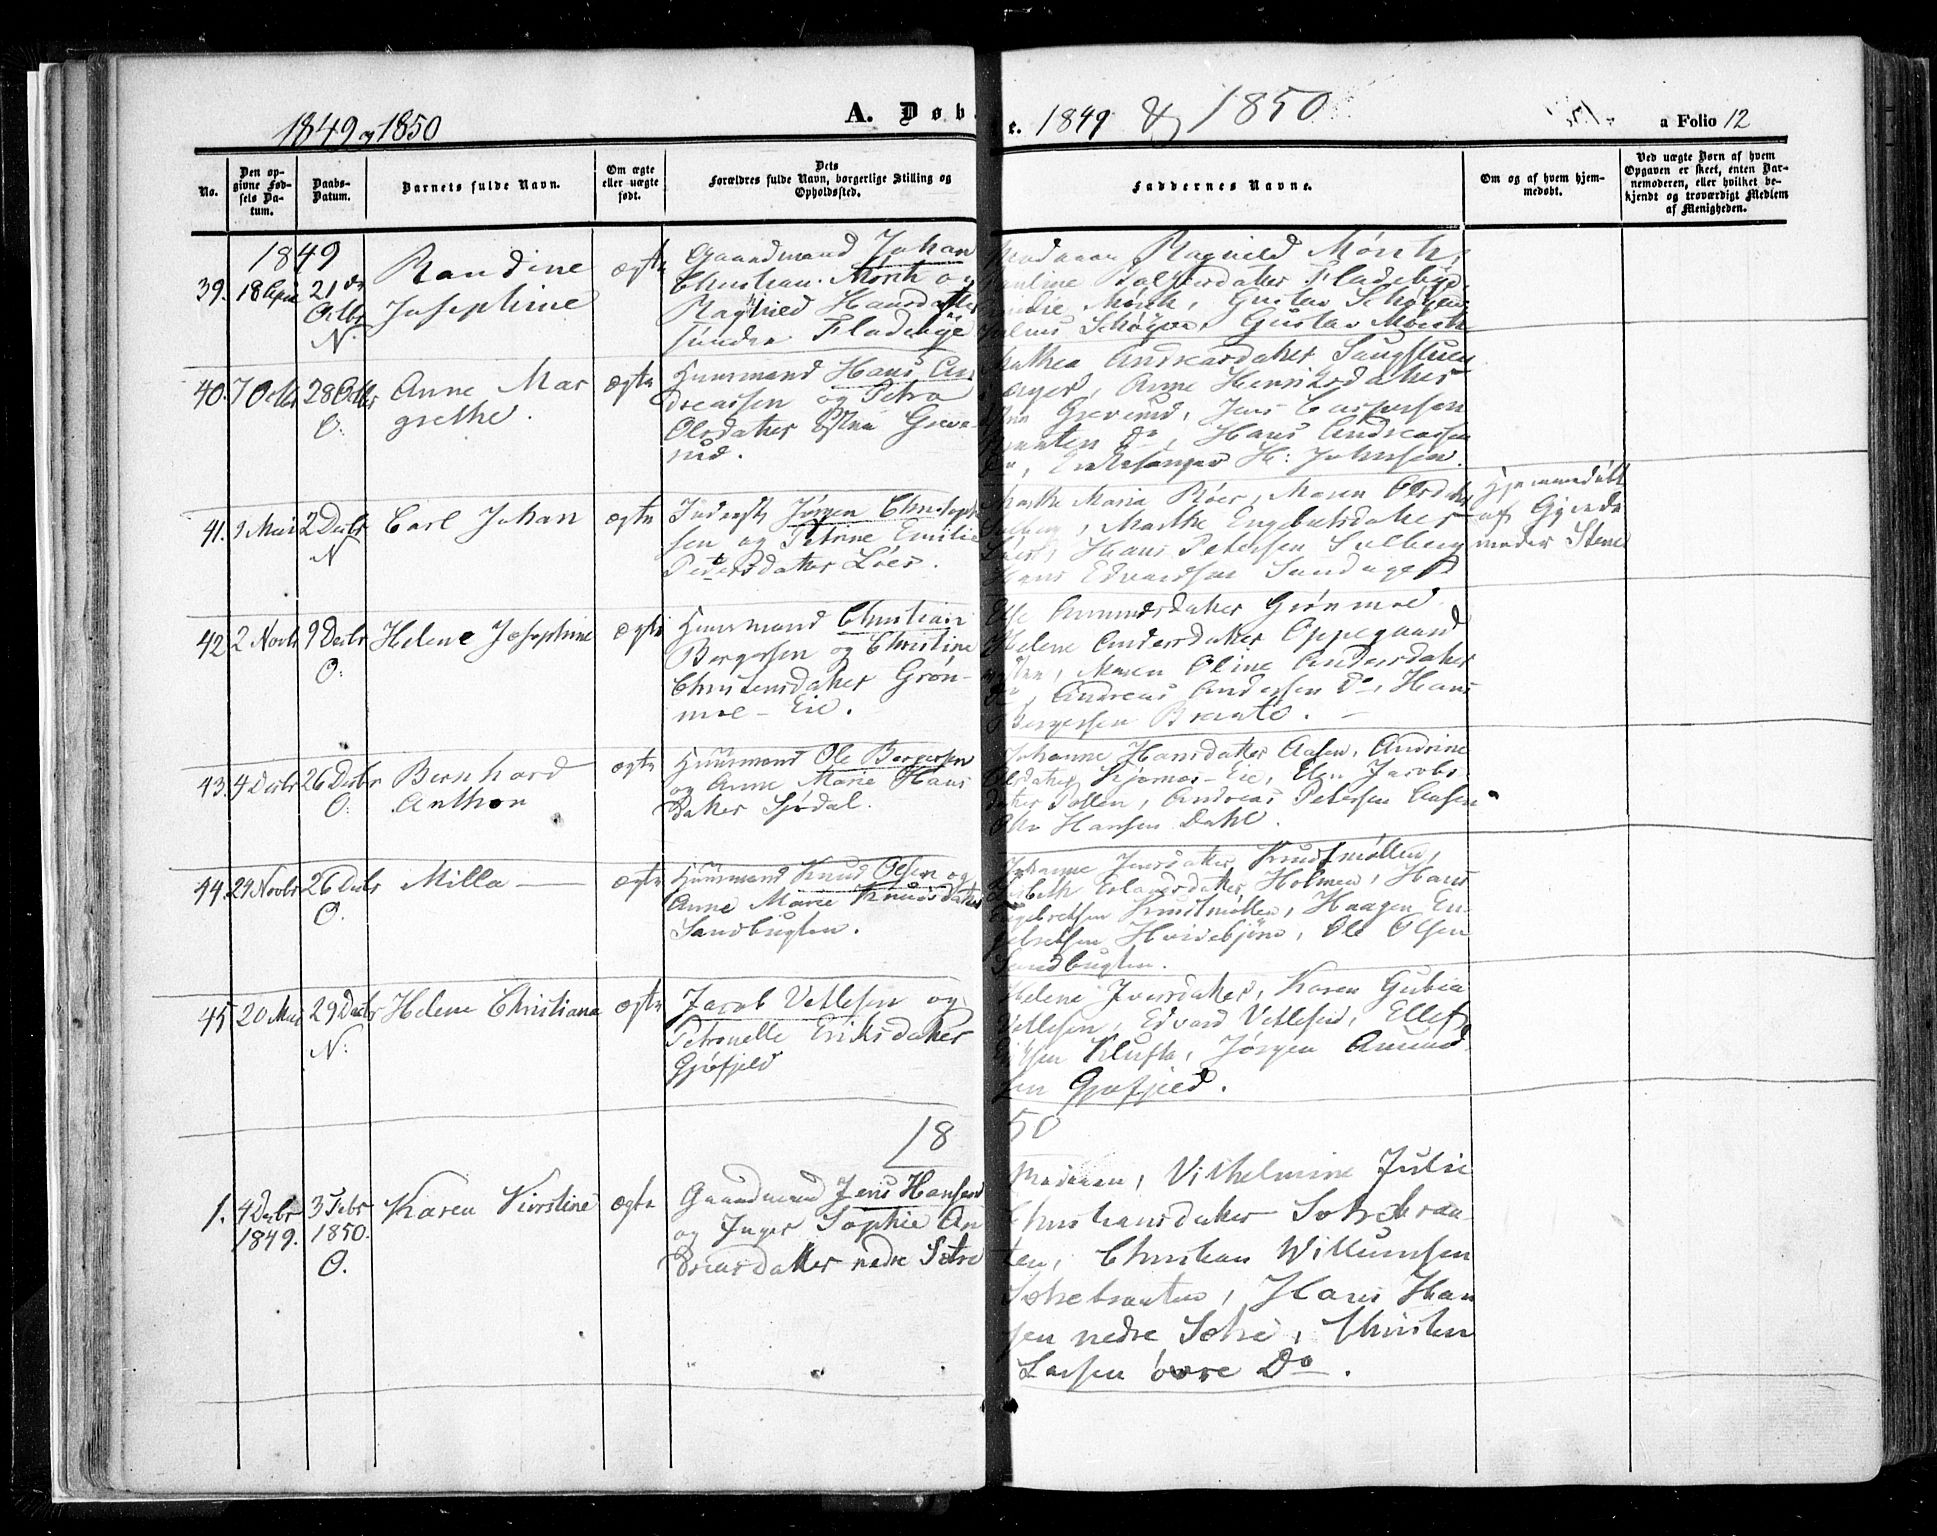 1849 og 1850
A. Døb
e. 1849 & 1850
a Folio 12
No.
Den op-
givne Fød-
sels Da-
tum.
Daabs-
Datum.
Barnets fulde Navn.
Om ægte
eller uægte
født.
Dets
Forældres fulde Navn, borgerlige Stilling og
Opholdssted.
Faddernes Navne.
Om og af hvem hjem-
medøbt.
Ved uægte Børn af hvem
Opgaven er skeet, enten Bar-
nemoderen, eller hvilket be-
kjendt og troværdigt Medlem
af Menigheden.
1849
39. 18 April 21de
Octbr
N.
Randine
Josephine
ægte
Gaardmand Johan
Christian Mørch og
Ragnild Hansdatter
søndre Fladebye
Madaam Ragnild Mørch,
Fladebye
Mørch, Gustav Schøyen
Schøyen, Gustav Mørch
40. 7 Octbr 28 Octbr
O.
Anne Mar
grethe.
ægte
Huusmand Hans An
dreassen og Petra
Olsdatter Østre Greve-
rud.
Mathea Andreasdatter Sangstuen
Anne Henriksdatter
Greverud, Jens Caspersen
Do, Hans Andreassen
Do, Kirkesanger H: Johnsen.
41. 9 Mai 2 Decbr
N
Carl Johan
ægte
Inderst Jørgen Christoph
sen og Petrine Emilie
Pedersdatter Løes.
Marthe Maria Røer, Maren Olsdatter
Solberg, Marthe Engebretsdatter
Hans Petersen Solberg
Hans Edvardsen
Hjemmedøbt
af Gjorde
moder Stene
42. 2 Novb 9 Decbr
O.
Helene Josephine
ægte
Huusmand Christian
Borgersen og Christine
Christensdatter Grøn-
moe-Eie.
Else Amundsdatter Grønmoe
Helene Andersdatter Oppegaard
Østre, Maren Oline Andersdatter
Do, Andreas Andersen Do, Hans
Borgersen Braate.
43. 4 Decbr 26 Decbr
O.
Bernhard
Anthon
ægte
Huusmand Ole Borgersen
og Anne Marie Hans
datter Spodal.
Johanne Hansdatter Aasen, Andrine
Olsdatter Kjærnes-Eie, Elen Jacobs
datter Pollen, Andreas Petersen Aasen
Hansen Dahl.
44. 29 Novbr 26 Decbr
O.
Milla
ægte
Huusmand Knud Olsen og
Anne Marie Knudsdatter
Sandbugten.
Johanne Jensdatter Krudtmøllen,
Lisbeth Erlandsdatter Holmen, Hans
Engebretsen Krudtmøllen, Haagen En
gebretsen Hvidebjørn, Ole Olsen
Sandbugten.
45. 20 Mai 29 Decbr
N:
Helene Christiana
ægte
Jacob Vetlesen og
Petronelle Eriksdatter
Gjøfjeld
Helene Iversdatter, Karen Gubia
Vetlesen, Edvard Vetlesen, Ellef
Klufta, Jørgen Amund
sen Gjøfjeld.
1850
1. 4 Decbr 3 Febr
1849. 1850.
O.
Karen Kirstine
ægte
Gaardmand Jens Hansen
og Inger Sophie An
dreasdatter nedre Sætre
Madaam, Vilhelmine Julie
Christiansdatter Sætrebraa-
ten, Christian Willumsen
Sætrebraaten, Hans Han
sen nedre Sætre, Christen
Larsen øvre Do.